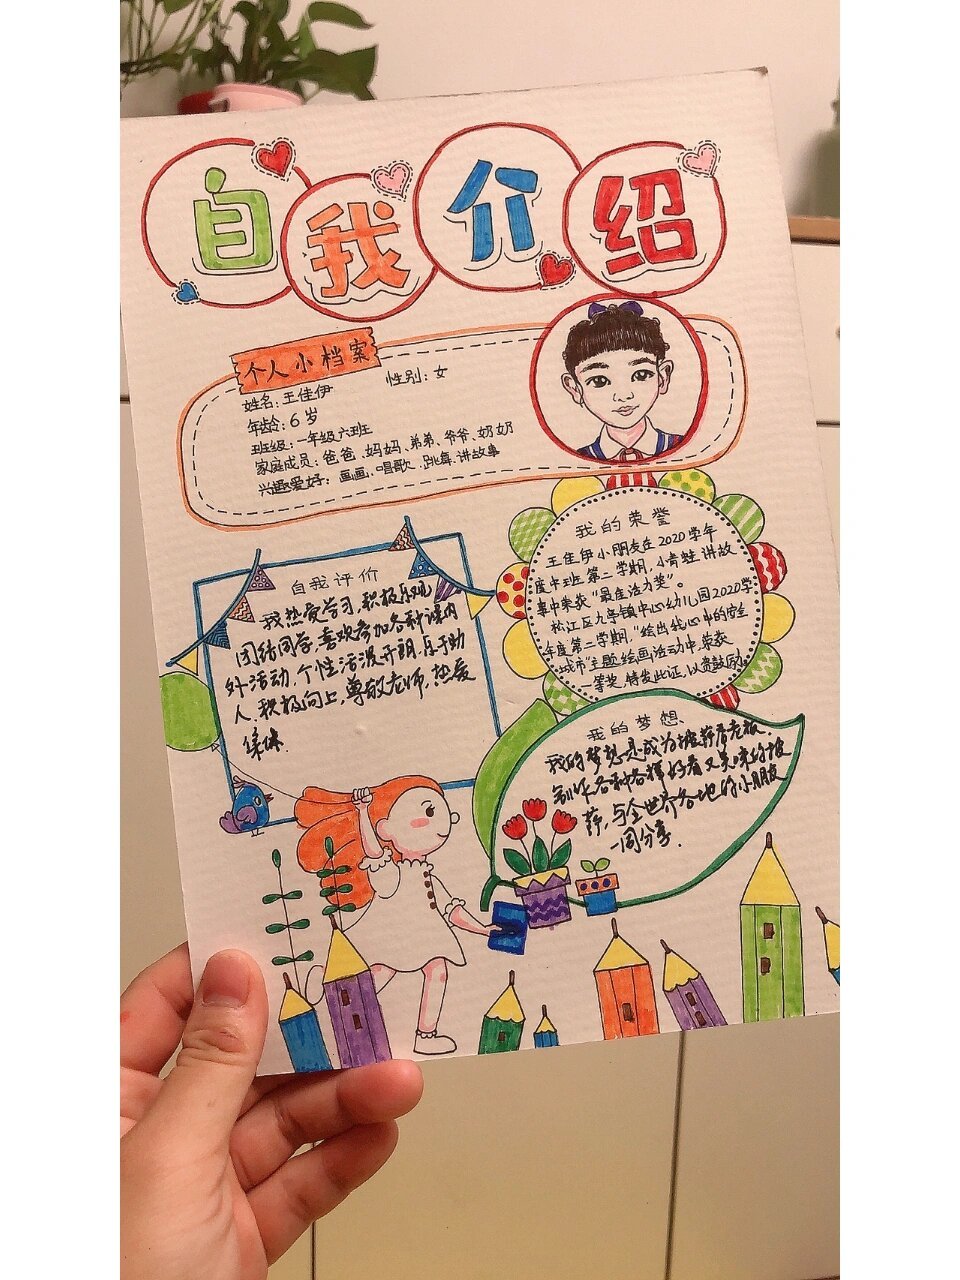 自我介绍
个人小档案
姓名:王佳伊
性别:女
年龄:6岁
班级:一年级六班
家庭成员:爸爸、妈妈、弟弟、爷爷、奶奶
兴趣爱好:画画、唱歌、跳舞、讲故事
自我评价
我热爱学习,积极乐观
团结同学,喜欢参加各种课内
外活动,个性活泼开朗,乐于助
人,积极向上,尊敬老师,热爱
集体.
我的荣誉
王佳伊小朋友在2020学年
度中班第二学期,小青蛙讲故
事中荣获“最佳活力奖”。
松江区九亭镇中心幼儿园2020学
年度第二学期,“绘出我心中的安全
城市”主题绘画活动中,荣获
一等奖,特发此证,以资鼓励。
我的梦想、
我的梦想是成为披萨店老板,
制作各种各样好看又美味的披
萨,与全世界各地的小朋友
一同分享.